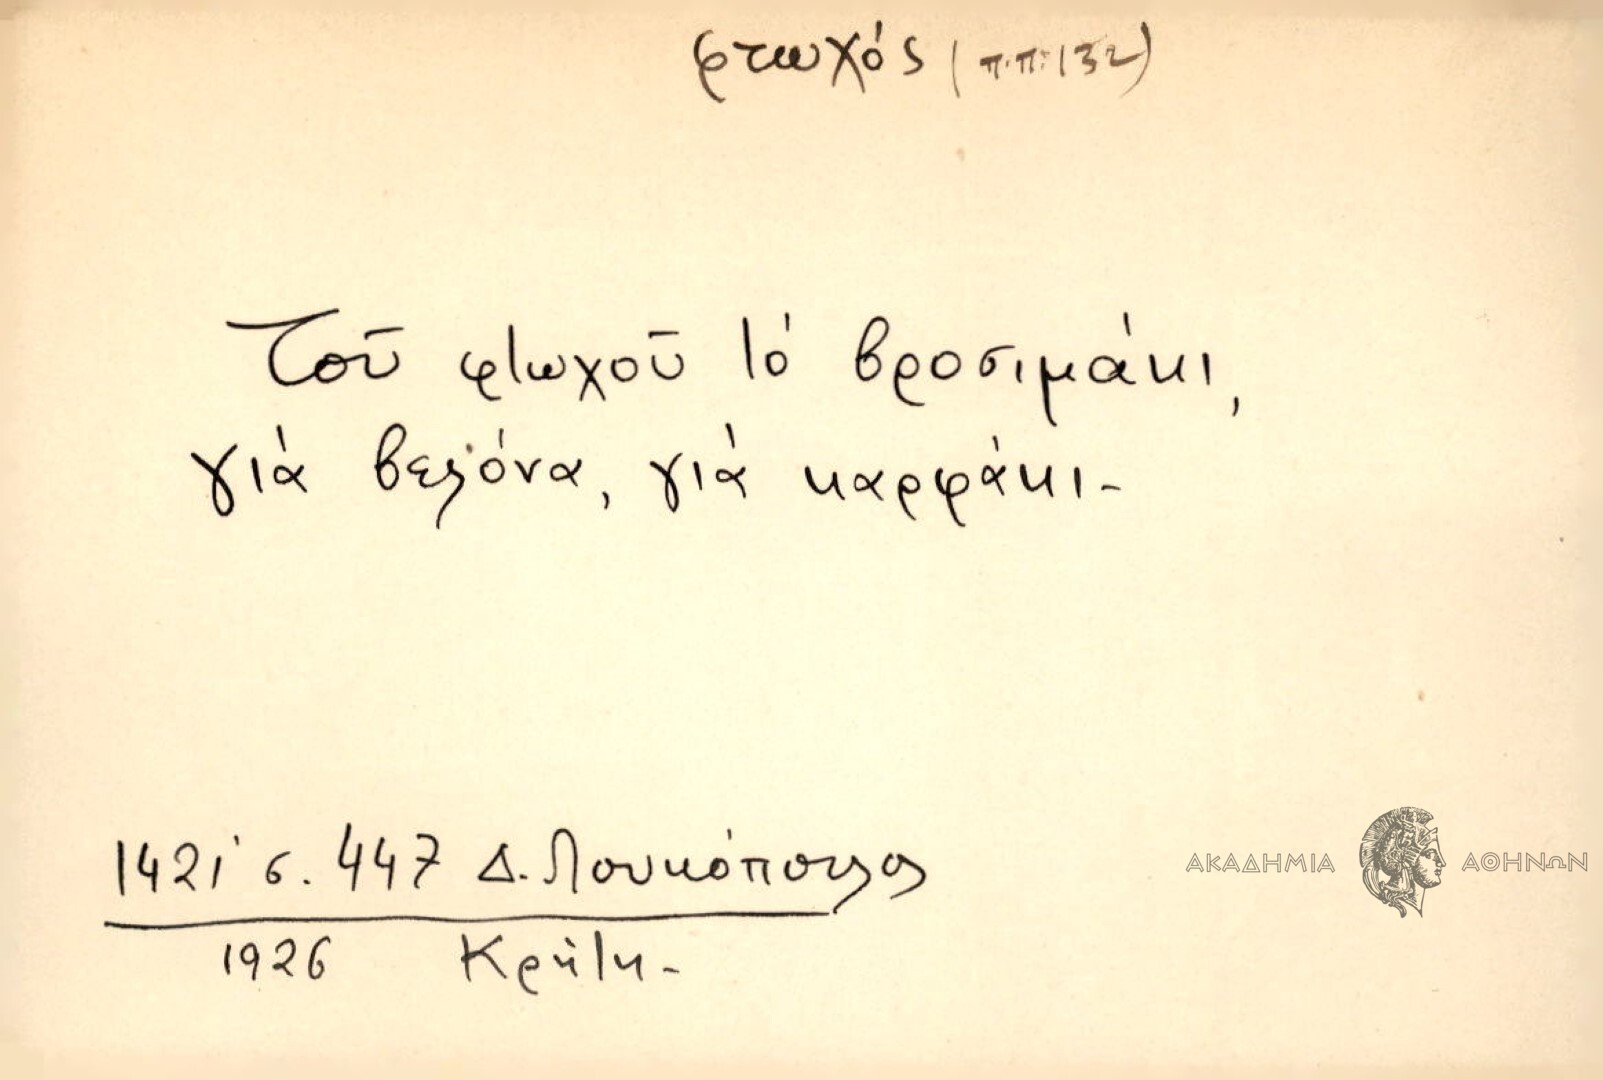 φτωχός (π.π. 132)
Τοῦ φτωχοῦ τό βροσιμάκι,
γιά βελόνα, γιά καρφάκι-
1421 σ. 447 Δ. Λουκόπουλος
1926 Κρήτη-
ΑΚΑΔΗΜΙΑ ΑΘΗΝΩΝ